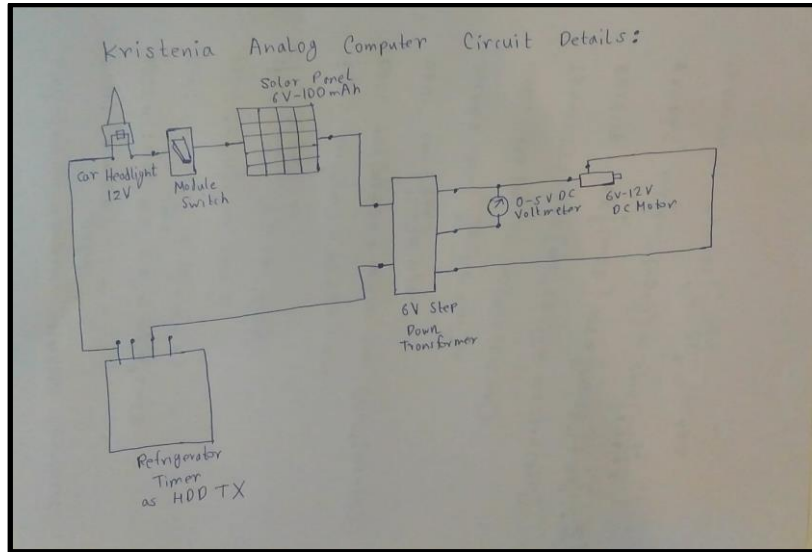 Kristenia Analog Computer Circuit Details:
Solar Panel
6V-100mAh
Car Headlight
12V
Module
Switch
0-5V DC
Voltmeter
6V-12V
DC Motor
6V Step
Down
Transformer
Refrigerator
Timer
as HDD TX